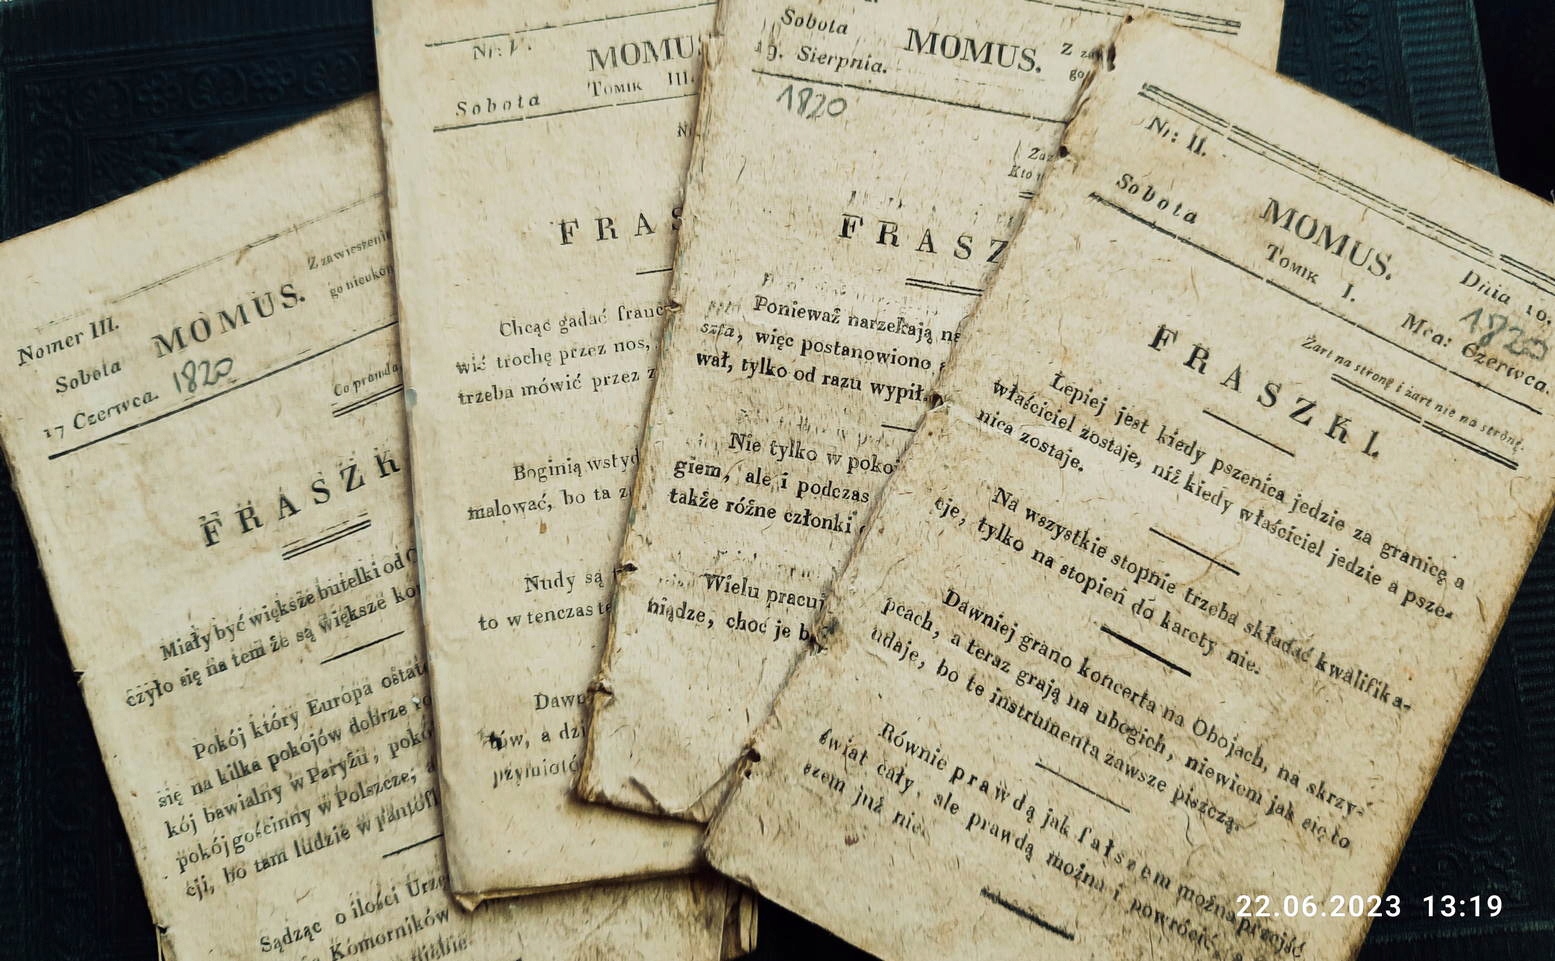 Nomer III.
Sobota
17 Czerwca. 1820
MOMUS.
Z zawieszenia
go nieukoń
Co prawda
FRASZK
Miały być większe butelki od
czyło się na tem że są większe ko
Pokój który Europa ostat
się na kilka pokojów dobrze
kój bawialny w Paryżu, pokó
pokój gościnny w Polszcze, a
cji, bo tam ludzie w pantofl
Sądząc o ilości Urzę
Komorników
Nr: V.
Sobota
MOMU
TOMIK III.
FRAS
Chcąc gadać franc
wić trochę przez nos,
trzeba mówić przez z
Boginią wstyd
malować, bo ta z
Nudy są
to w tenczas te
Dawn
tów, a dzi
przymiotó
Sobota
19. Sierpnia.
1820
MOMUS.
Z za
go
Zar
Kto
FRASZ
Ponieważ narzekają na
szta, więc postanowiono
wał, tylko od razu wypił.
Nie tylko w poko
giem, ale i podczas
także różne członki
Wielu pracuj
niądze, choć je b
Nr: II.
Sobota
MOMUS.
TOMIK I.
Dnia 10.
Mca: Czerwca.
1820
Żart na stronę i żart nie na stronę.
FRASZKI.
Lepiej jest kiedy pszenica jedzie za granicę a
właściciel zostaje, niż kiedy właściciel jedzie a psze-
nica zostaje.
Na wszystkie stopnie trzeba składać kwalifika-
cje, tylko na stopień do karety nie.
Dawniej grano koncerta na Obojach, na skrzy-
pcach, a teraz grają na ubogich, niewiem jak się to
udaje, bo te instrumenta zawsze piszczą.
Równie prawdą jak fałszem można przejść
świat cały, ale prawdą można i powrócić
szem już nie.
22.06.2023 13:19